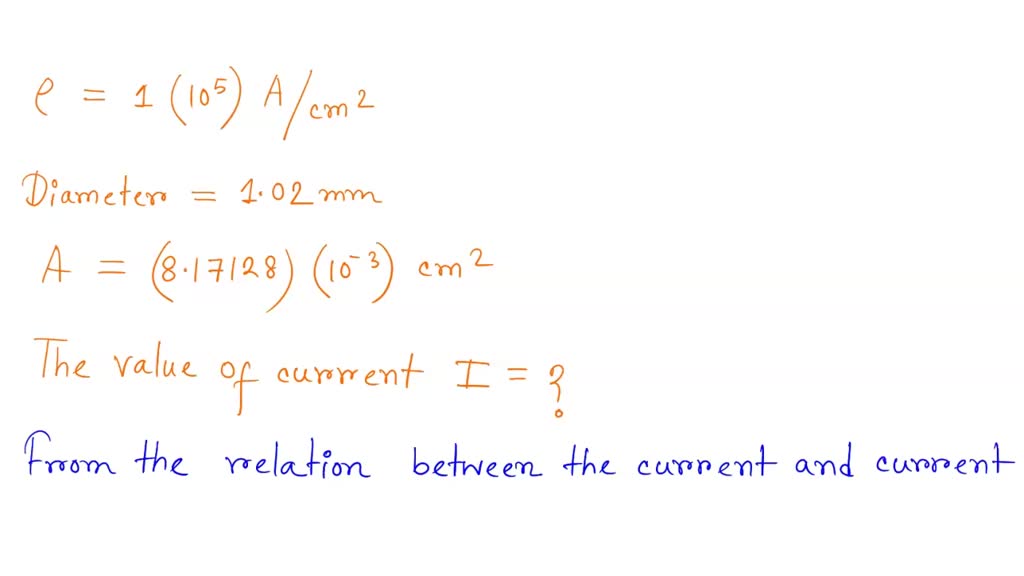 ρ = 1 (10⁵) A/cm²
Diameter = 1.02 mm
A = (8.17128) (10⁻³) cm²
The value of current I = ?
From the relation between the current and current